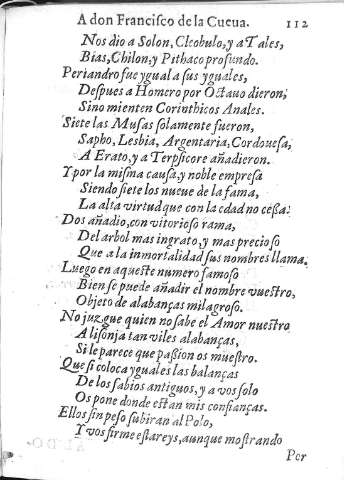 A don Francisco de la Cueua. 112
Nos dio a Solon, Cleobulo, y a Tales,
Bias, Chilon, y Pithaco profundo.
Periandro fue ygual a sus yguales,
Despues a Homero por Octauo dieron,
Sino mienten Corinthicos Anales.
Siete las Musas solamente fueron,
Sapho, Lesbia, Argentaria, Cordouesa,
A Erato, y a Terpsicore añadieron.
Y por la misma causa, y noble empresa
Siendo siete los nueue de la fama,
La alta virtud que con la edad no cessa:
Dos añadio, con vitorioso rama,
Del arbol mas ingrato, y mas precioso
Que a la inmortalidad sus nombres llama.
Luego en aqueste numero famoso
Bien se puede añadir el nombre vuestro,
Objeto de alabanças milagroso.
No juzgue quien no sabe el Amor nuestro
A lisonja tan viles alabanças,
Si le parece que passion os muestro.
Que si coloca yguales las balanças
De los sabios antiguos, y a vos solo
Os pone donde estan mis confianças.
Ellos sin peso subiran al Polo,
Y vos firme estareys, aunque mostrando
Per